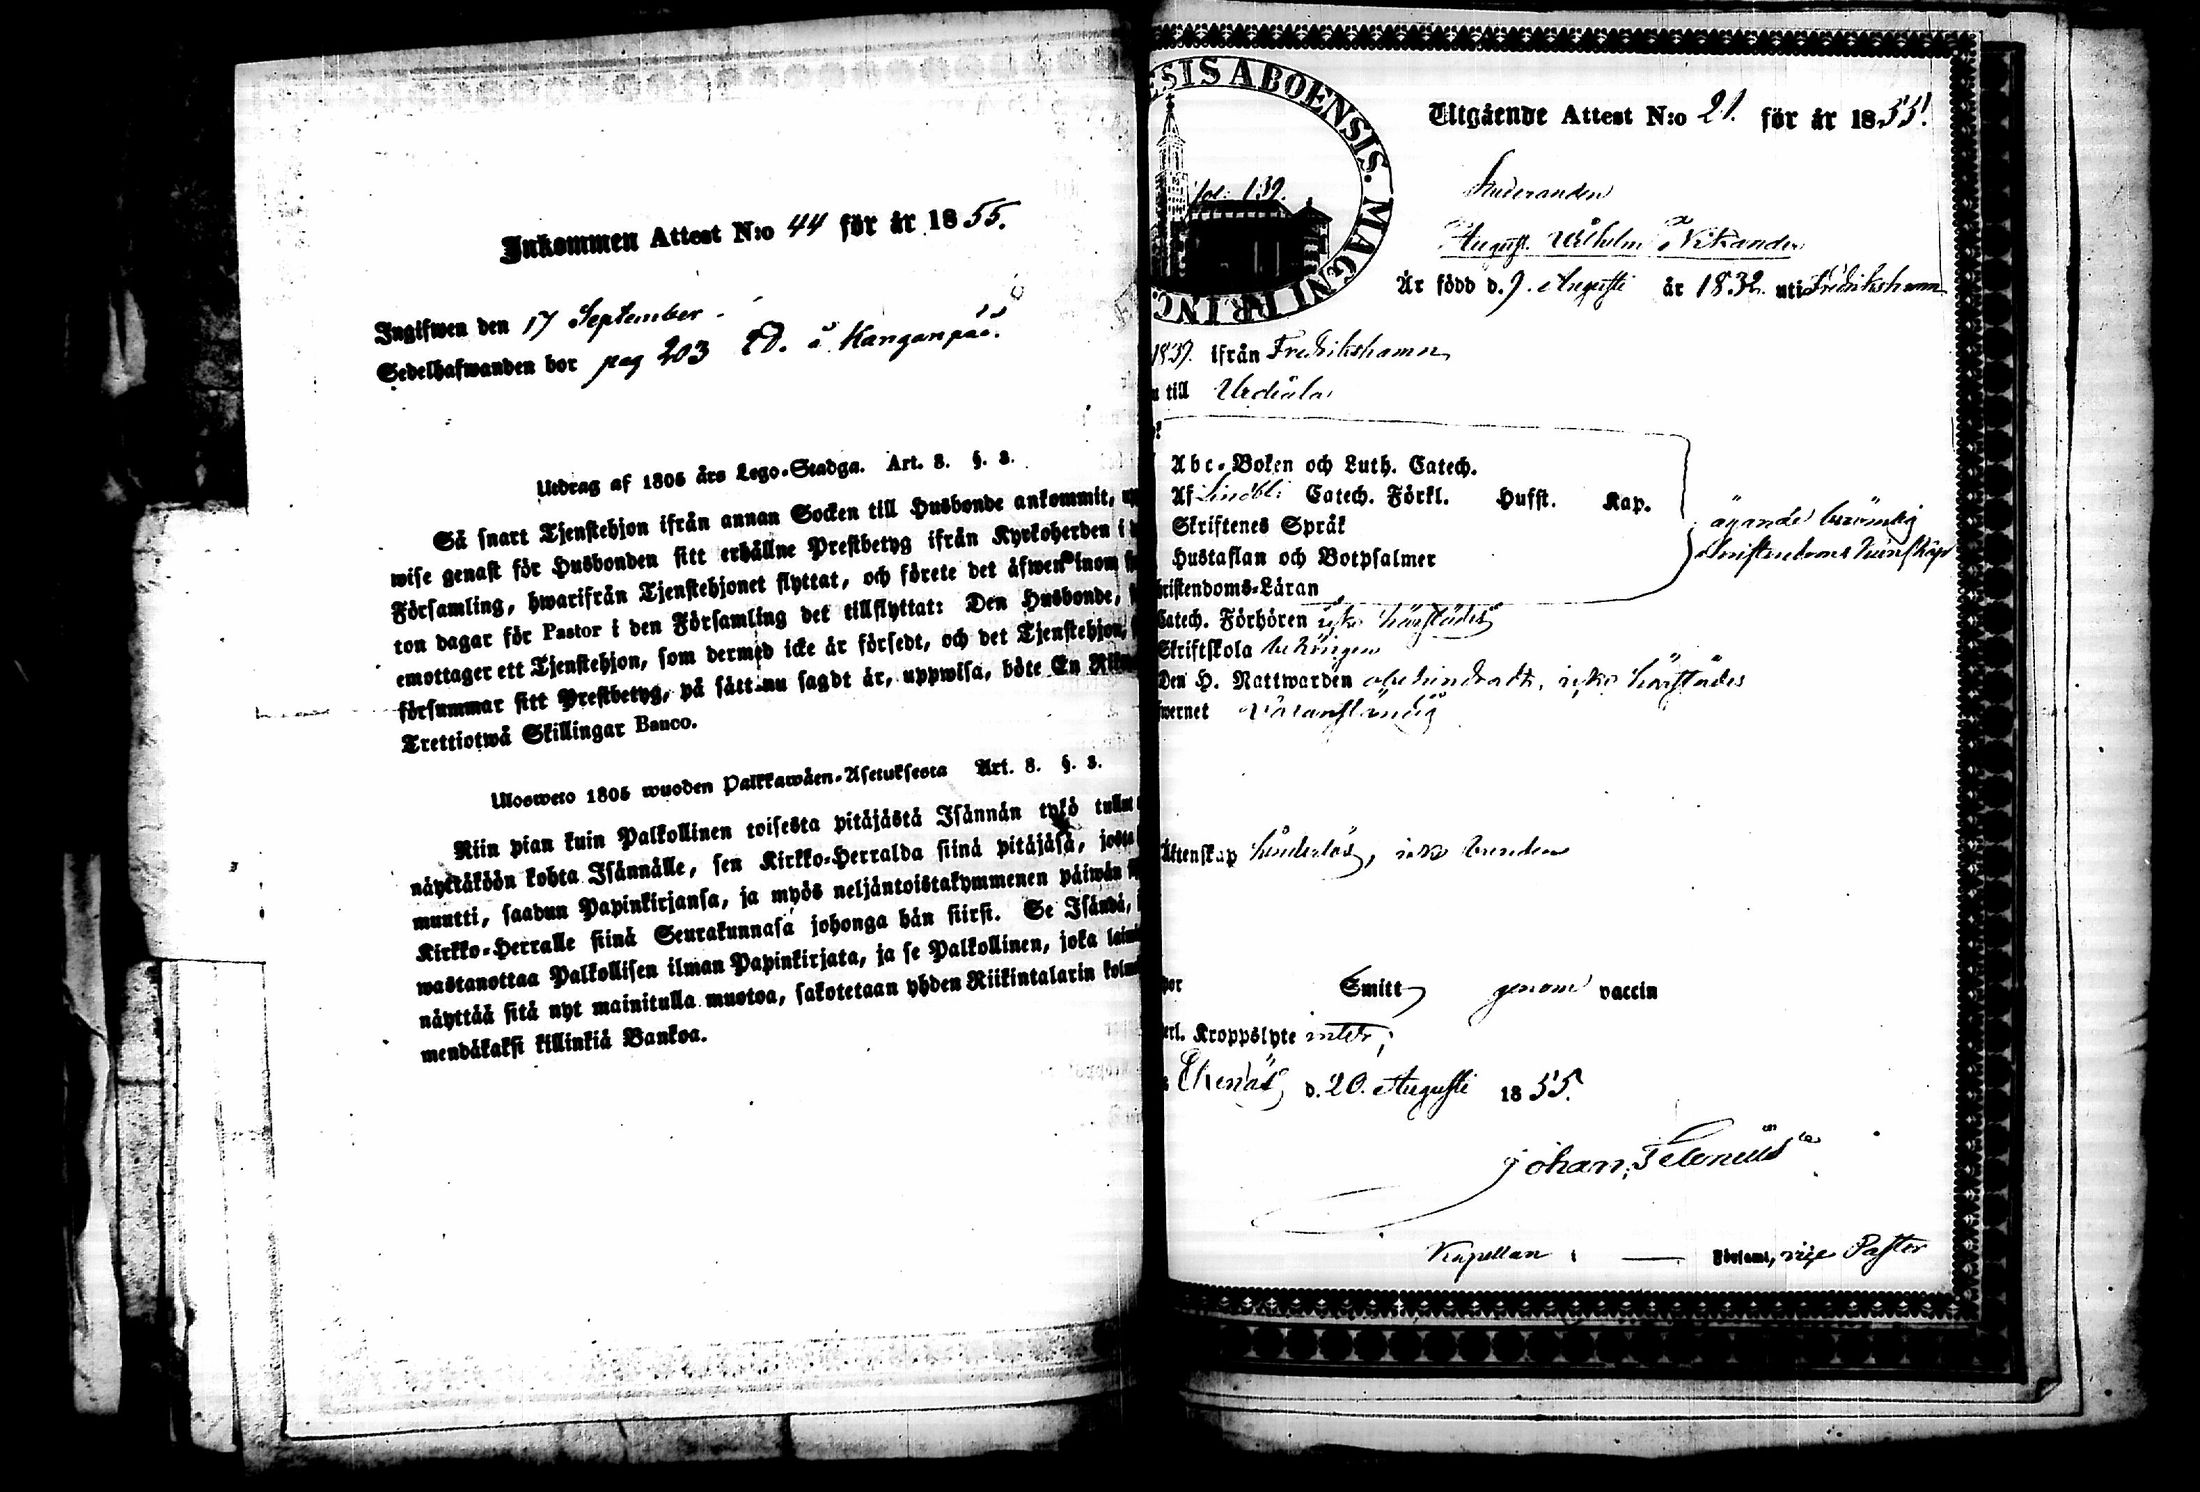 Inkommen Attest N:o 44 för år 1855.
Ingifwen den 17 September
Sedelhafwanden bor pag 203 å Kanganpää.
Utdrag af 1805 års Lego-Stadga. Art. 8. §. 3.
Så snart Tjenstehjon ifrån annan Socken till Husbonde ankommit,
wise genast för Husbonden sitt erhållne Prestbetyg ifrån Kyrkoherden i
Församling, hwarifrån Tjenstehjonet flyttat, och förete det äfwen inom
ton dagar för Pastor i den Församling det tillflyttat: Den Husbonde,
emottager ett Tjenstehjon, som dermed icke är försedt, och det Tjenstehjon,
försummar sitt Prestbetyg, på sätt nu sagdt är, uppwisa, böte En
Trettiotwå Skillingar Banco.
Ulosweto 1805 wuoden Palkkawäen-Asetuksesta Art. 8. §. 3.
Niin pian kuin Palkollinen toisesta pitäjästä Isännän tykö
näyttäköön kohta Isännälle, sen Kirkko-Herralda siinä pitäjäsä, josta
muutti, saadun Papinkirjansa, ja myös neljäntoistakymmenen päiwän
Kirkko-Herralle siinä Seurakunnasa johonga hän siirsi. Se Isändä,
wastanottaa Palkollisen ilman Papinkirjata, ja se Palkollinen, joka
näyttää sitä nyt mainitulla muotoa, sakotetaan yhden Riikintalarin
mendäkaksi killinkiä Bankoa.
ESIS ABOENSIS. MAGNI PRINC.
fol. 139.
Utgående Attest N:o 21. för år 1855.
Studeranden
August Wilhelm Nikander
Är född d. 9. Augusti år 1832. uti Fredrikshamn
1839. ifrån Fredrikshamn
till Urdiala
Abc-Boken och Luth. Catech.
Af Lindbl: Catech. Förkl. Husst. Kap.
ägande berömlig
Skriftenes Språk
Christendoms kunskap
Hustaflan och Botpsalmer
ristendoms-Läran
Catech. Förhören icke härstädes
Skriftskola behörigen
Den H. Nattwarden obehindradt, icke härstädes
wernet Wäranständig
Äktenskap hinderlös, icke bunden
por Smitt genom vaccin
erl. Kroppslyte intet;
Ekenäs d. 20. Augusti 1855.
Johan
Kapellan i — Församl, vice Pastor